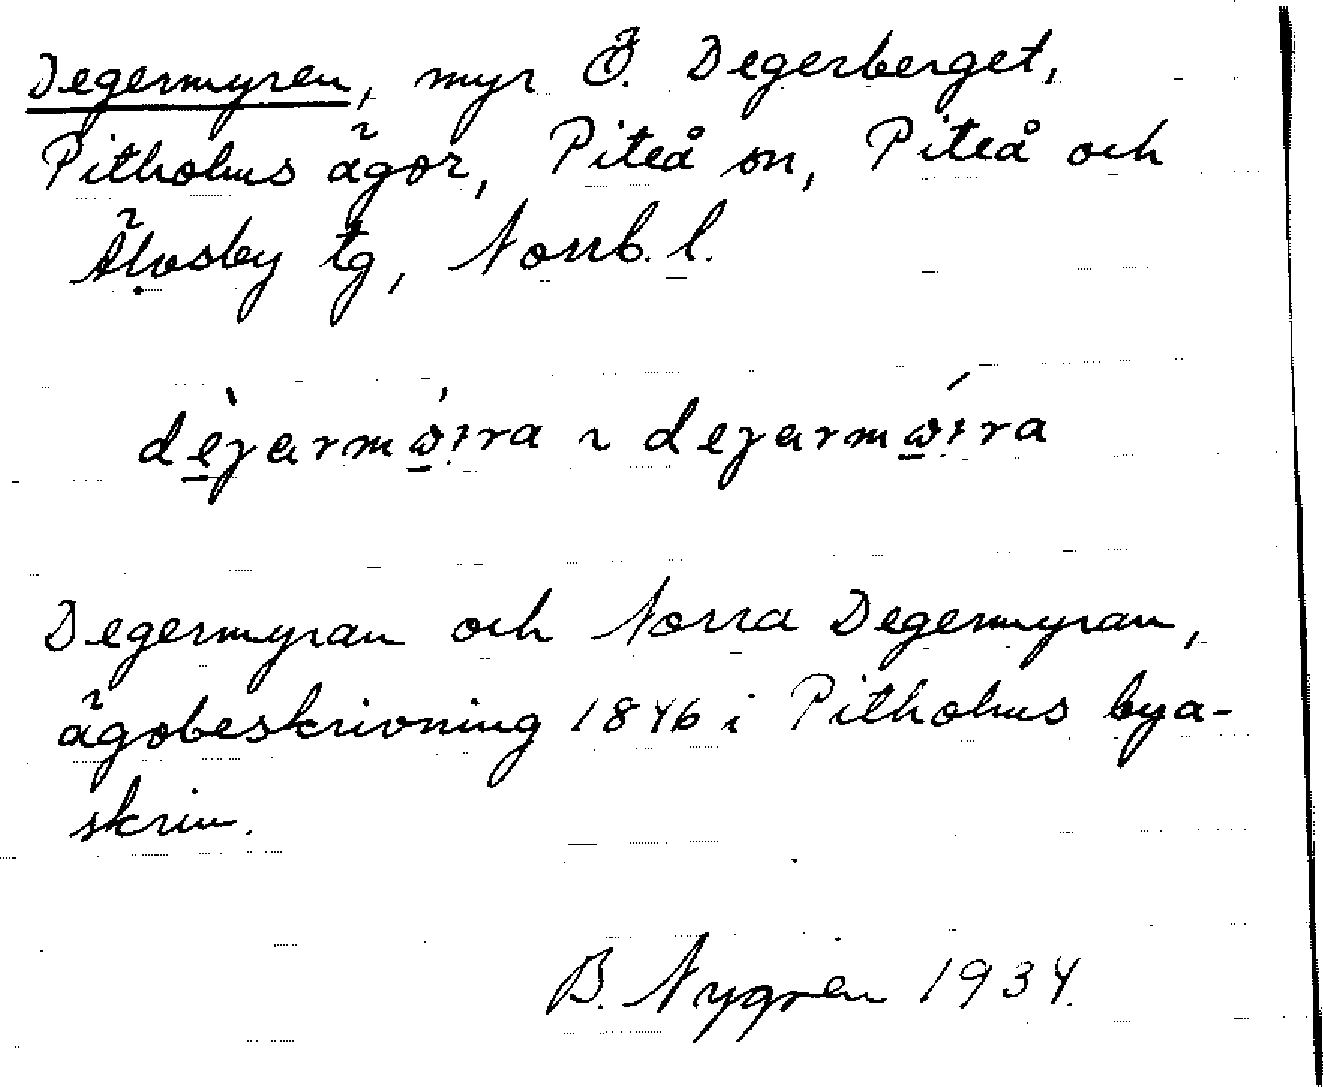 Degermyren, myr Ö. Degerberget,
Pitholms ägor, Piteå sn, Piteå och
Älvsby tg, Norrb. l.
dèɡarmò̤ira ~ degarmó̤ira
Degermyran och Norra Degermyran,
ägobeskrivning 1846 i Pitholms bya-
skrin.
B. Nygren 1934.